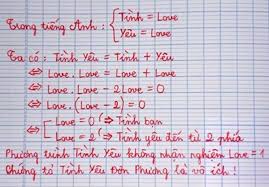 Trong tiếng Anh: { Tình = Love
Yêu = Love
Ta có: Tình Yêu = Tình + Yêu
⇔ Love. Love = Love + Love
⇔ Love. Love - 2 Love = 0
⇔ Love. (Love - 2) = 0
⇔ [ Love = 0 (⇒ Tình bạn
Love = 2 (⇒ Tình yêu đến từ 2 phía
Phương trình Tình Yêu không nhận nghiệm Love = 1
Chứng tỏ Tình Yêu Đơn Phương là vô ích!